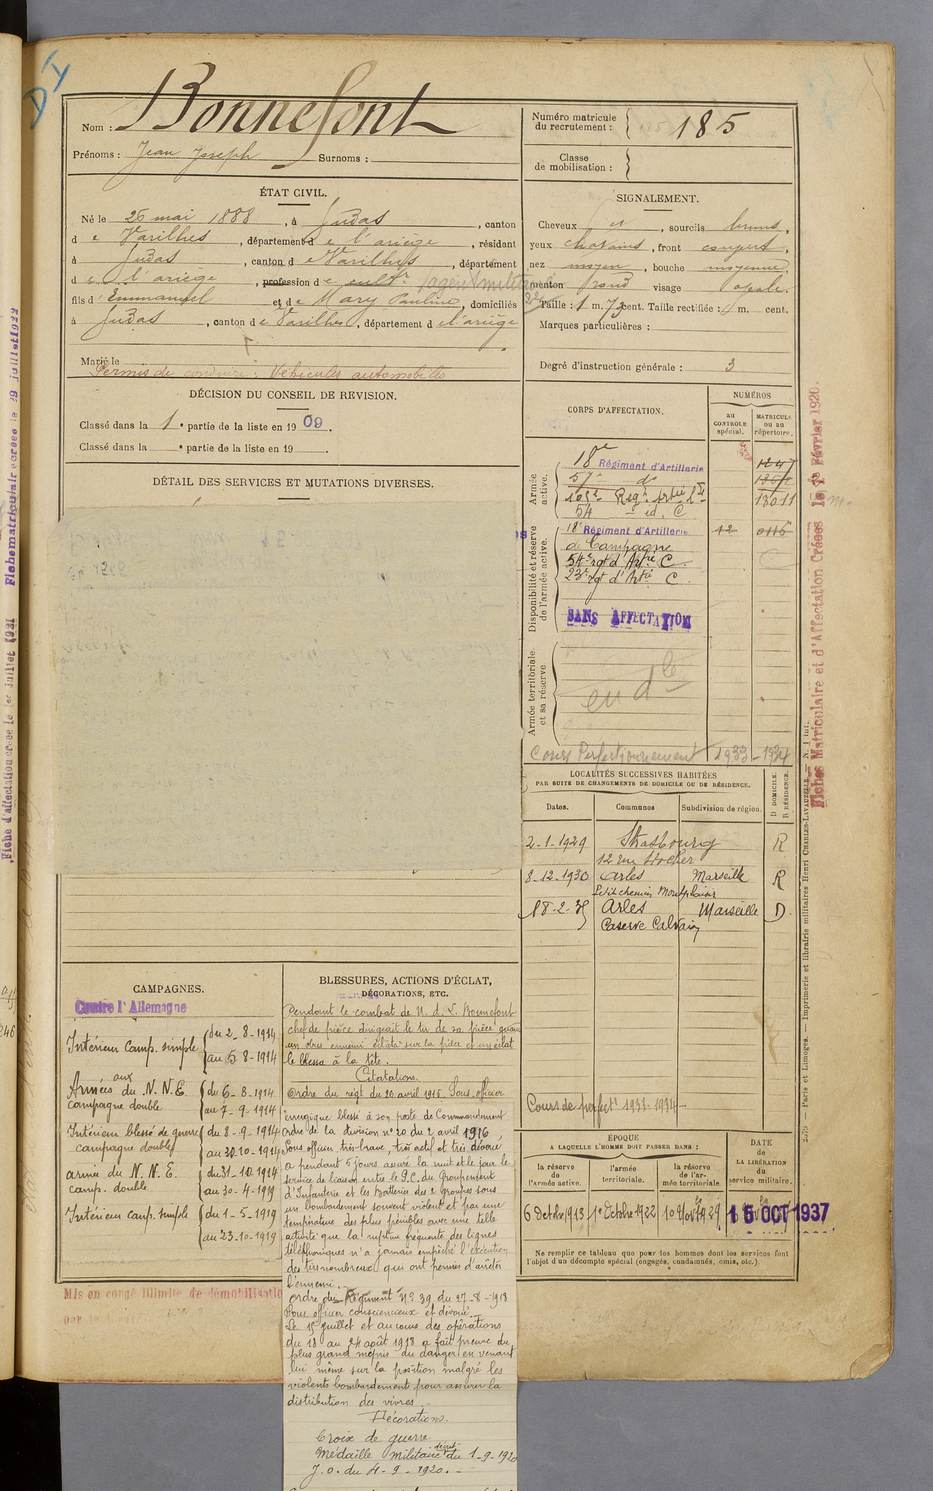 Nom : Bonnefont
Prénoms : Jean Joseph Surnoms :
Numéro matricule du recrutement : 185
Classe de mobilisation :
ÉTAT CIVIL.
Né le 26 mai 1888, à Gudas, canton
de Varilhes, département de l'ariège, résidant
à Gudas, canton de Varilhes, département
de l'ariège, profession de cultr agent militre
fils d'Emmanuel et de Mary Pauline, domiciliés
à Gudas, canton de Varilhes, département de l'ariège
Marié le
Permis de conduire : Véhicules automobiles
DÉCISION DU CONSEIL DE REVISION.
Classé dans la 1e partie de la liste en 1909.
Classé dans la e partie de la liste en 19 .
DÉTAIL DES SERVICES ET MUTATIONS DIVERSES.
SIGNALEMENT.
Cheveux et, sourcils bruns,
yeux chatains, front couvert,
nez moyen, bouche moyenne,
menton rond visage ovale.
Taille : 1 m. 73 cent. Taille rectifiée : m. cent.
Marques particulières :
Degré d'instruction générale : 3
CORPS D'AFFECTATION.
NUMÉROS
au CONTROLE spécial.
MATRICULE ou au répertoire.
Armée active.
18e Régiment d'Artillerie
57e do
165e Regt Artie
13011
54 e id. C
Disponibilité et réserve de l'armée active.
18e Régiment d'Artillerie 12 0116
de Campagne
54e rgt d'Artie C.
23e rgt d'Artie C.
SANS AFFECTATION
Armée territoriale et sa réserve
en dle
Cours Perfectionnement 1933-1934
LOCALITÉS SUCCESSIVES HABITÉES
PAR SUITE DE CHANGEMENTS DE DOMICILE OU DE RÉSIDENCE.
Dates. Communes Subdivision de région. D DOMICILE. R RÉSIDENCE.
2-1-1929 Strasbourg R
12 rue
8-12-1930 Arles Marseille R
Petit chemin Montplaisir
18-2-35 Arles Marseille D.
Caserne Calvain
Cours de perfectt 1933-1934
ÉPOQUE
A LAQUELLE L'HOMME DOIT PASSER DANS :
la réserve de l'armée active.
l'armée territoriale.
la réserve de l'armée territoriale.
DATE DE LA LIBÉRATION du service militaire.
6 Octobre 1913 1e Octobre 1922 15 OCT 1937
Ne remplir ce tableau que pour les hommes dont les services font
l'objet d'un décompte spécial (engagés, condamnés, omis, etc.).
CAMPAGNES.
Contre l'Allemagne
Intérieur camp. simple du 2-8-1914
au 5-8-1914
Armées aux du N.N.E du 6-8-1914
campagne double au 7-9-1914
Intérieur blessé de guerre du 8-9-1914
campagne double au 30-10-1914
armée du N.N.E. du 31-10-1914
camp. double au 30-4-1919
Intérieur camp. simple du 1-5-1919
au 23-10-1919
Mis en congé illimité de démobilisation
BLESSURES, ACTIONS D'ÉCLAT,
DÉCORATIONS, ETC.
Pendant le combat de N. d. L. Bonnefont
chef de pièce dirigeait le tir de sa pièce quand
un obus ennemi éclata sur la pièce et un éclat
le blessa à la tête.
Citations.
Ordre du régt du 20 avril 1915. Sous officier
énergique blessé à son poste de Commandement
Ordre de la division no 20 du 2 avril 1916
Sous officier très brave, très actif et très dévoué
a pendant 5 jours, assuré la nuit et le jour le
service de liaison entre le P.C. du Groupement
d'Infanterie et les Batteries des 2 groupes sous
un bombardement souvent violent et par une
température des plus pénibles avec une telle
activité que la rupture fréquente des lignes
téléphoniques n'a jamais empêché l'exécution
des tirs nombreux qui ont permis d'arrêter
l'ennemi.
Ordre du Régiment No 39 du 27-8-1918
Sous officier consciencieux et dévoué.
Le 15 juillet et au cours des opérations
du 18 au 24 août 1918 a fait preuve du
plus grand mépris du danger en venant
lui même sur la position malgré les
violents bombardement pour assurer la
distribution des vivres.
Décorations.
Croix de guerre
Médaille militaire décret du 1-9-1920
J.O. du 4-9-1920.
Fiche d'affectation créée le 1er Juillet 1931 Fiche matriculaire créée le 29 juillet 1932
Fiches Matriculaire et d'Affectation Créées le 1er Février 1920.
Paris et Limoges. — Imprimerie et librairie militaires Henri CHARLES-LAVAUZELLE. —